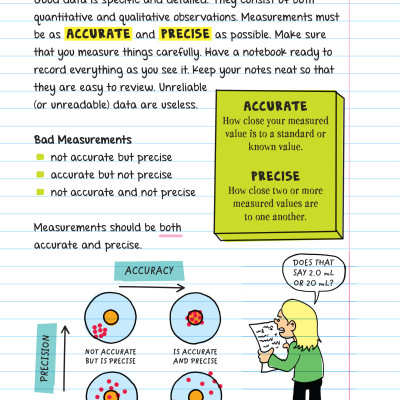 Good data is specific and detailed. They consist of both
quantitative and qualitative observations. Measurements must
be as ACCURATE and PRECISE as possible. Make sure
that you measure things carefully. Have a notebook ready to
record everything as you see it. Keep your notes neat so that
they are easy to review. Unreliable
(or unreadable) data are useless.
ACCURATE
How close your measured
value is to a standard or
known value.
PRECISE
How close two or more
measured values are
to one another.
Bad Measurements
not accurate but precise
accurate but not precise
not accurate and not precise
Measurements should be both
accurate and precise.
ACCURACY
PRECISION
NOT ACCURATE
BUT IS PRECISE
IS ACCURATE
AND PRECISE
DOES THAT
SAY 2.0 mL
OR 20 mL?